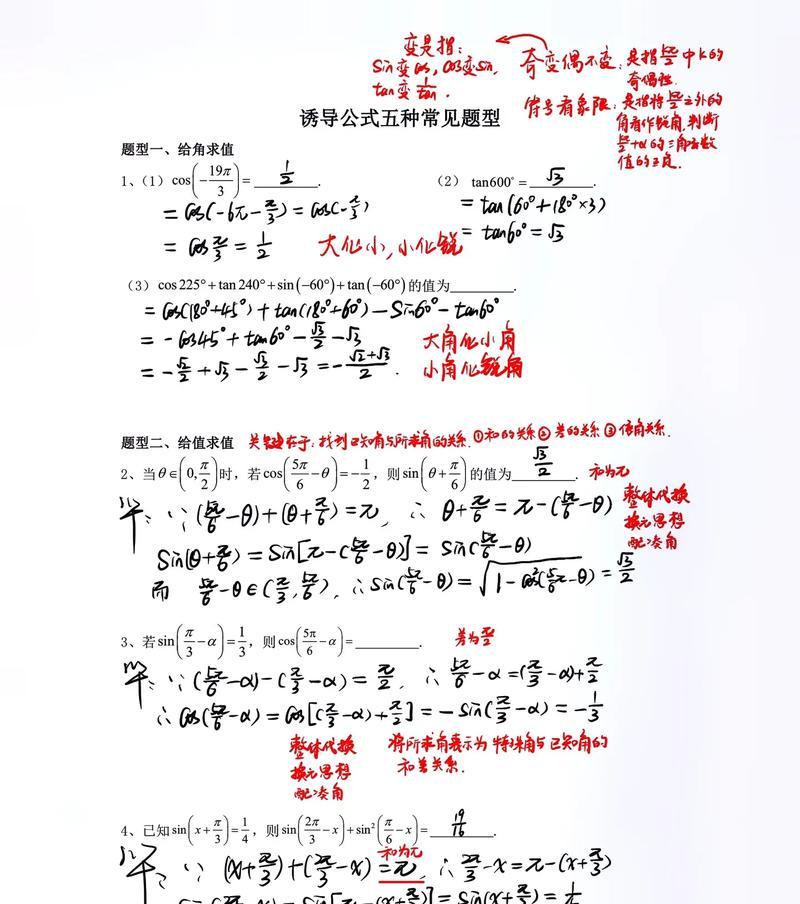 变是指：
sin变cos, cos变sin,
tan变1/tan.
奇变偶不变：是指kπ/2中k的
奇偶性.
符号看象限：是指将kπ/2之外的
角看作锐角,判断
kπ/2+α的三角函数
值的正负.
诱导公式五种常见题型
题型一、给角求值
1、（1）cos(-19π/3)= 1/2 .
= cos(-6π-π/3)=cos(-π/3)
= cosπ/3 = 1/2
（2） tan600°= √3 .
= tan(60°+180°×3)
= tan60°=√3
大化小,小化锐
（3）cos225°+tan240°+sin(-60°)+tan(-60°)的值为________.
= cos(180°+45°)+tan(180°+60°)-sin60°-tan60°
= -cos45°+tan60°-√3/2-√3
= -√2/2+√3-√3/2-√3=-(√2+√3)/2.
大角化小角
小角化锐角
题型二、给值求值 关键在于：找到已知角与所求角的关系.①和的关系②差的关系③倍角关系.
2、当θ∈(0,π/2)时，若cos(5π/6-θ)=-1/2，则sin(θ+π/6)的值为 √3/2 . 和为π
解：∵(5π/6-θ)+(θ+π/6)=π, ∴θ+π/6=π-(5π/6-θ)
sin(θ+π/6)=sin[π-(5π/6-θ)]=sin(5π/6-θ)
而 5π/6-θ∈(π/3,5π/6), ∴sin(5π/6-θ)=√(1-cos²(5π/6-θ))=√3/2
整体代换
换元思想
配凑角
3、若sin(π/3-α)=1/3，则cos(5π/6-α)=________. 差为π/2
解：∵(5π/6-α)-(π/3-α)=π/2, ∴5π/6-α=(π/3-α)+π/2
∴cos(5π/6-α)=cos[(π/3-α)+π/2]=-sin(π/3-α)=-1/3
整体代换
换元思想
配凑角
将所求角表示为特殊角与已知角的
和差关系.
4、已知sin(x+π/3)=1/4，则sin(2π/3-x)+sin²(π/6-x)= 19/16 .
和为π
解：∵(x+π/3)+(2π/3-x)=π, ∴2π/3-x=π-(x+π/3)